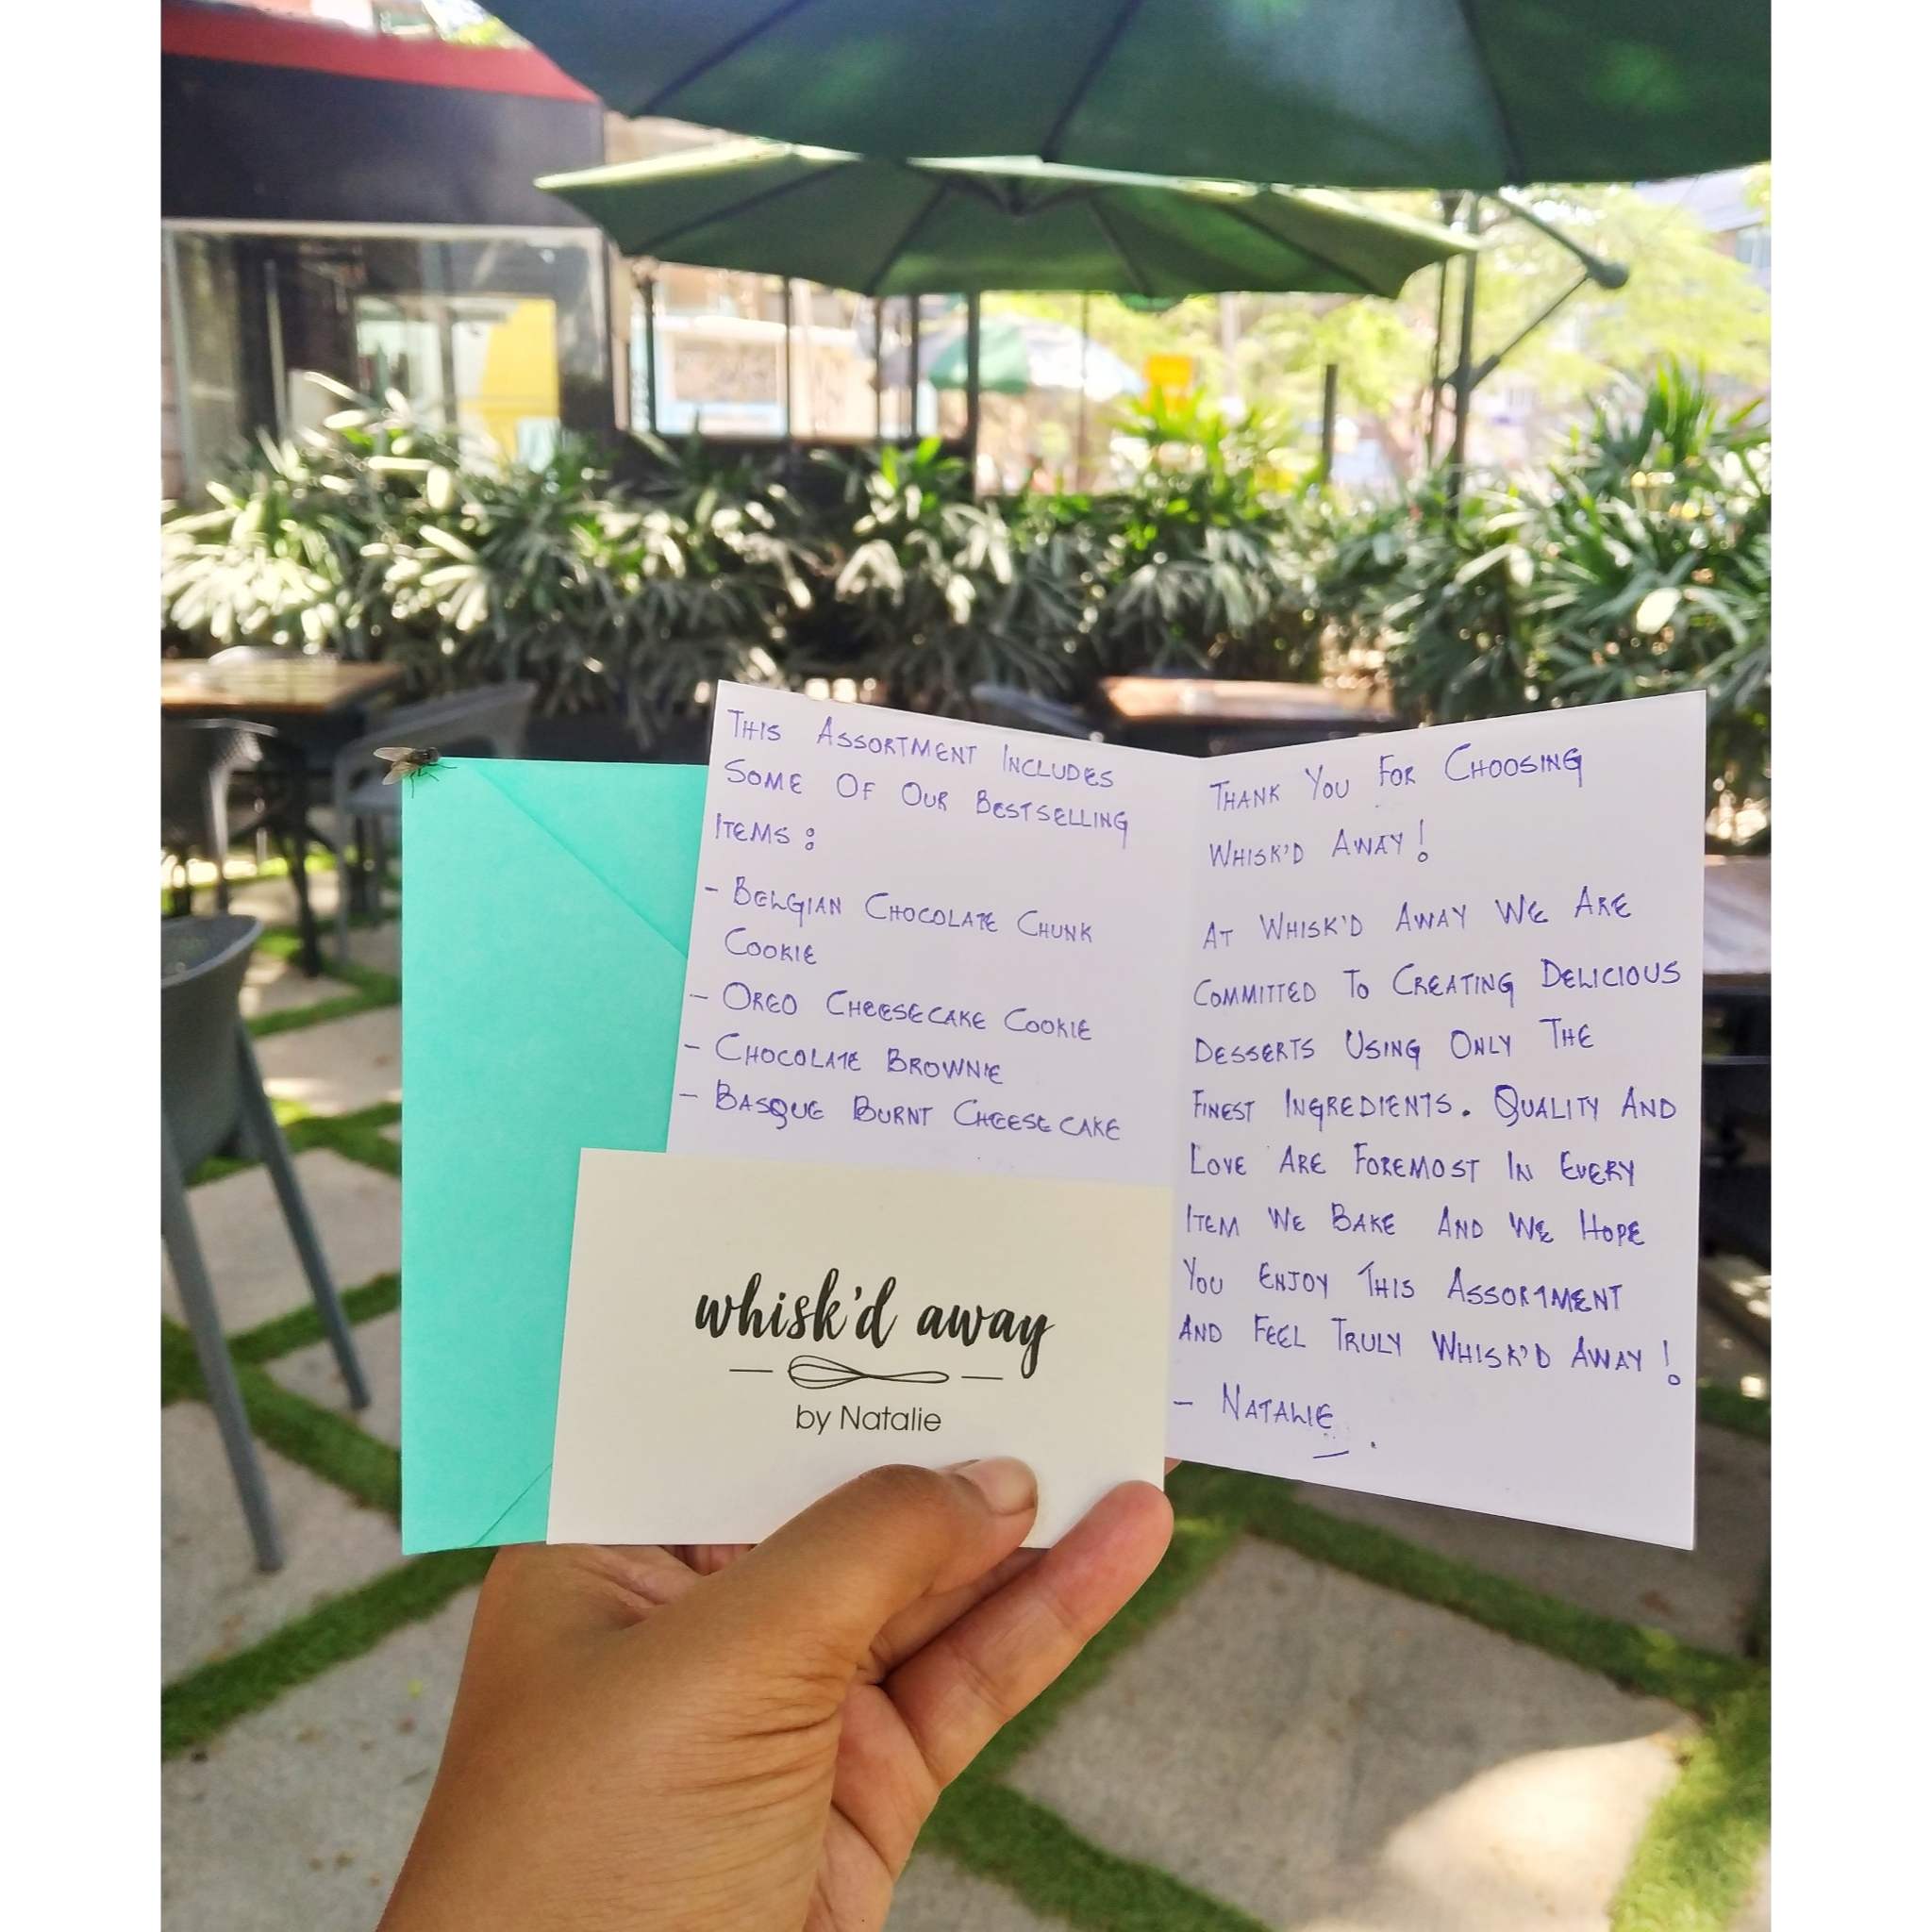 This Assortment Includes
Some Of Our Bestselling
Items:
- Belgian Chocolate Chunk
Cookie
- Oreo Cheesecake Cookie
- Chocolate Brownie
- Basque Burnt Cheesecake
whisk'd away
by Natalie
Thank You For Choosing
Whisk'd Away!
At Whisk'd Away We Are
Committed To Creating Delicious
Desserts Using Only The
Finest Ingredients. Quality And
Love Are Foremost In Every
Item We Bake And We Hope
You Enjoy This Assortment
And Feel Truly Whisk'd Away!
- Natalie